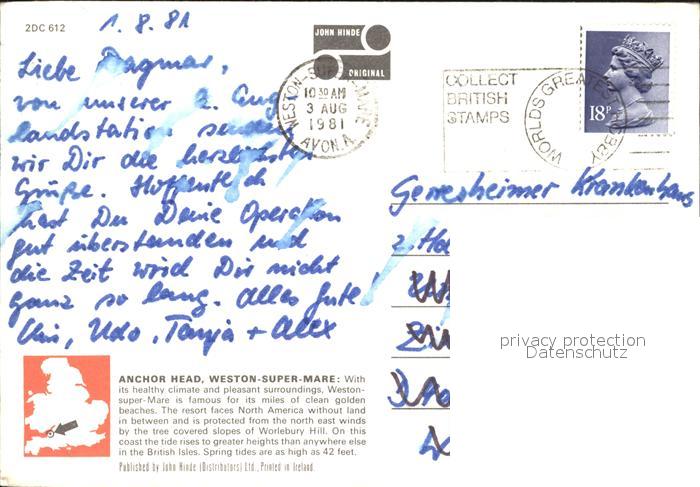 2DC 612
1.8.81
JOHN HINDE
ORIGINAL
Liebe Dagmar,
von unserer 2. Aus
landstation senden
wir Dir die herzlichsten
Grüße. Hoffentlich
hast Du Deine Operation
gut überstanden und
die Zeit wird Dir nicht
ganz so lang. Alles Gute!
Uli, Udo, Tanja + Alex
WESTON-SUPER-MARE
10 30 AM
3 AUG
1981
AVON A
COLLECT
BRITISH
STAMPS
WORLDS GREATEST HOBBY
18P
Gerresheimer Krankenhaus
privacy protection
Datenschutz
ANCHOR HEAD, WESTON-SUPER-MARE: With
its healthy climate and pleasant surroundings, Weston-
super-Mare is famous for its miles of clean golden
beaches. The resort faces North America without land
in between and is protected from the north east winds
by the tree covered slopes of Worlebury Hill. On this
coast the tide rises to greater heights than anywhere else
in the British Isles. Spring tides are as high as 42 feet.
Published by John Hinde (Distributors) Ltd., Printed in Ireland.